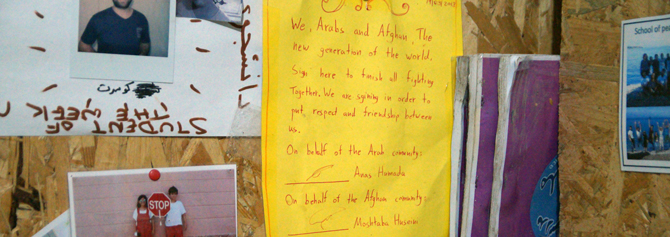 We, Arabs and Afghan, The
new generation of the world.
Sign here to finish all fighting
Together. We are signing in order to
put respect and friendship between
us.
On behalf of the Arab community:
Anas Hamadu
On behalf of the Afghan community:
Moshtaba Huseini
STUDENT
OF
THE
WEEK
STOP
School of pe